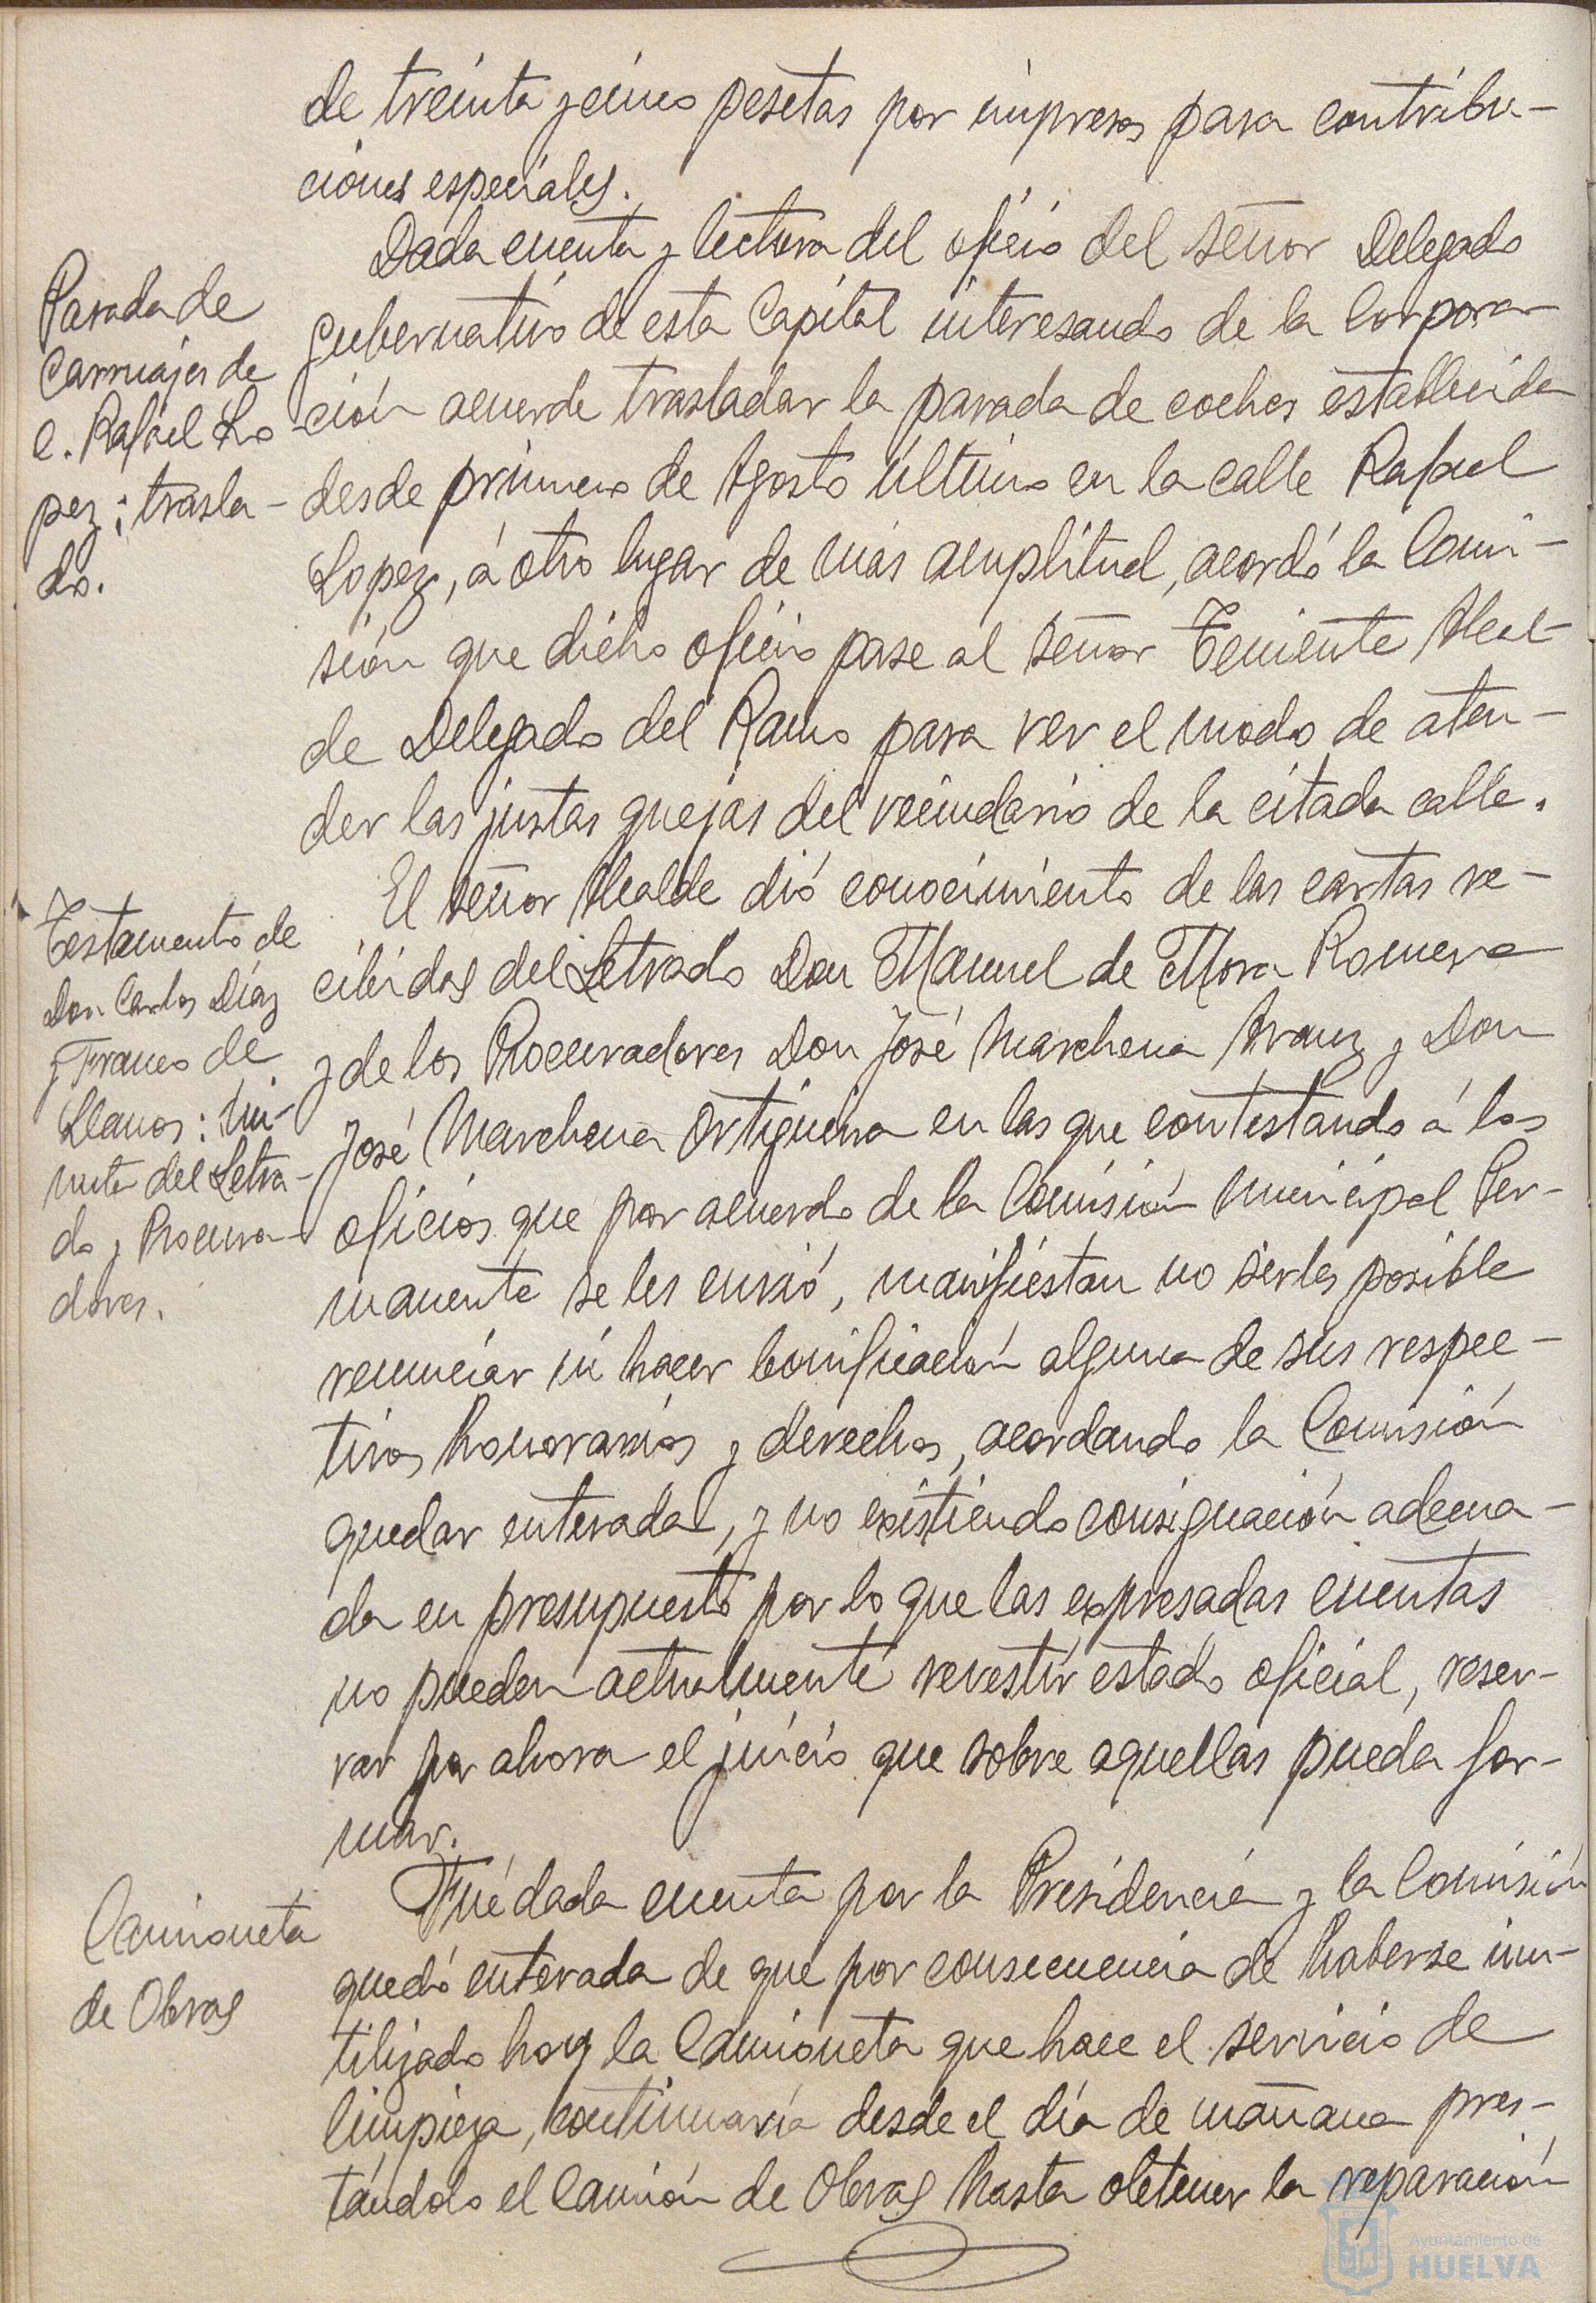 de treinta y cinco pesetas por impresos para contribu-
ciones especiales.
Parada de
Carruajes de
c. Rafael Lo-
pez; trasla-
do.
Dada cuenta y lectura del oficio del señor Delegado
gubernativo de esta Capital interesando de la Corpora-
ción acuerde trasladar la parada de coches establecida
desde primero de Agosto último en la calle Rafael
Lopez, á otro lugar de más amplitud, acordó la Comi-
sión que dicho oficio pase al señor Teniente Alcal-
de Delegado del Ramo para ver el modo de aten-
der las justas quejas del vecindario de la citada calle.
Testamento de
Don Carlos Díaz
y Franco de
Llanos: Mi-
nuta del Letra-
do y Procura-
dores.
El señor Alcalde dió conocimiento de las cartas re-
cibidas del Letrado Don Manuel de Mora Romero
y de los Procuradores Don José Marchena Arauz y Don
José Marchena Ortigueira en las que contestando á los
oficios que por acuerdo de la Comisión Municipal Per-
manente se les envió, manifiestan no serles posible
renunciar ni hacer bonificación alguna de sus respec-
tivos honorarios y derechos, acordando la Comisión
quedar enterada, y no existiendo consignación adecua-
da en presupuesto por lo que las expresadas cuentas
no pueden actualmente revestir estado oficial, reser-
var por ahora el juicio que sobre aquellas pueda for-
mar.
Camioneta
de Obras
Fué dada cuenta por la Presidencia y la Comisión
quedó enterada de que por consecuencia de haberse inu-
tilizado hoy la Camioneta que hace el servicio de
limpieza, continuaría desde el día de mañana pres-
tándolo el Camión de Obras hasta obtener la reparación
Ayuntamiento de
HUELVA